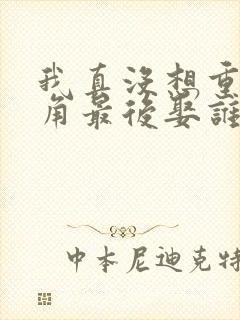 我真沒想重
角最後娶誰
中本尼迪克特